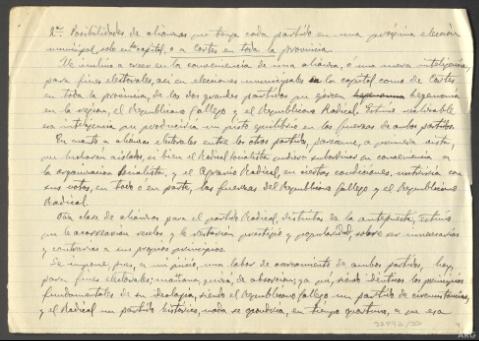 2ª. Posibilidades de alianzas que tenga cada partido en una próxima elección
municipal, solo en la capital, o a Cortes en toda la provincia.
Me inclino a creer en la conveniencia de una alianza, ó una nueva inteligencia,
para fines electorales, así en elecciones municipales en la capital como de Cortes
en toda la provincia, de los dos grandes partidos que ejercen hegemonía
en la región, el Republicano Gallego y el Republicano Radical. Estimo
esa inteligencia que produciría un justo equilibrio en las fuerzas de ambos partidos.
En cuanto a alianzas electorales entre los otros partidos, paréceme, a primera vista,
que lucharán aislados, si bien el Radical Socialista pudiera
la organización Socialista, y el Agrario Radical, en ciertas condiciones, nutriría con
sus votos, en todo o en parte, las fuerzas del Republicano Gallego y el Republicano
Radical.
Otra clase de alianzas para el partido Radical, distintas de la antepuesta, estimo
que le acarrearían recelos y le restarían prestigio y popularidad, sobre ser innecesarias
y contrarias a sus propios principios.
Se impone, pues, a mi juicio, una labor de acercamiento de ambos partidos, hoy,
para fines electorales; mañana, quizá, de absorción; ya que, siendo idénticos los principios
fundamentales de su ideología, siendo el Republicano Gallego un partido de circunstancias,
y el Radical un partido histórico, nada se opondría, en tiempo oportuno, a que esa